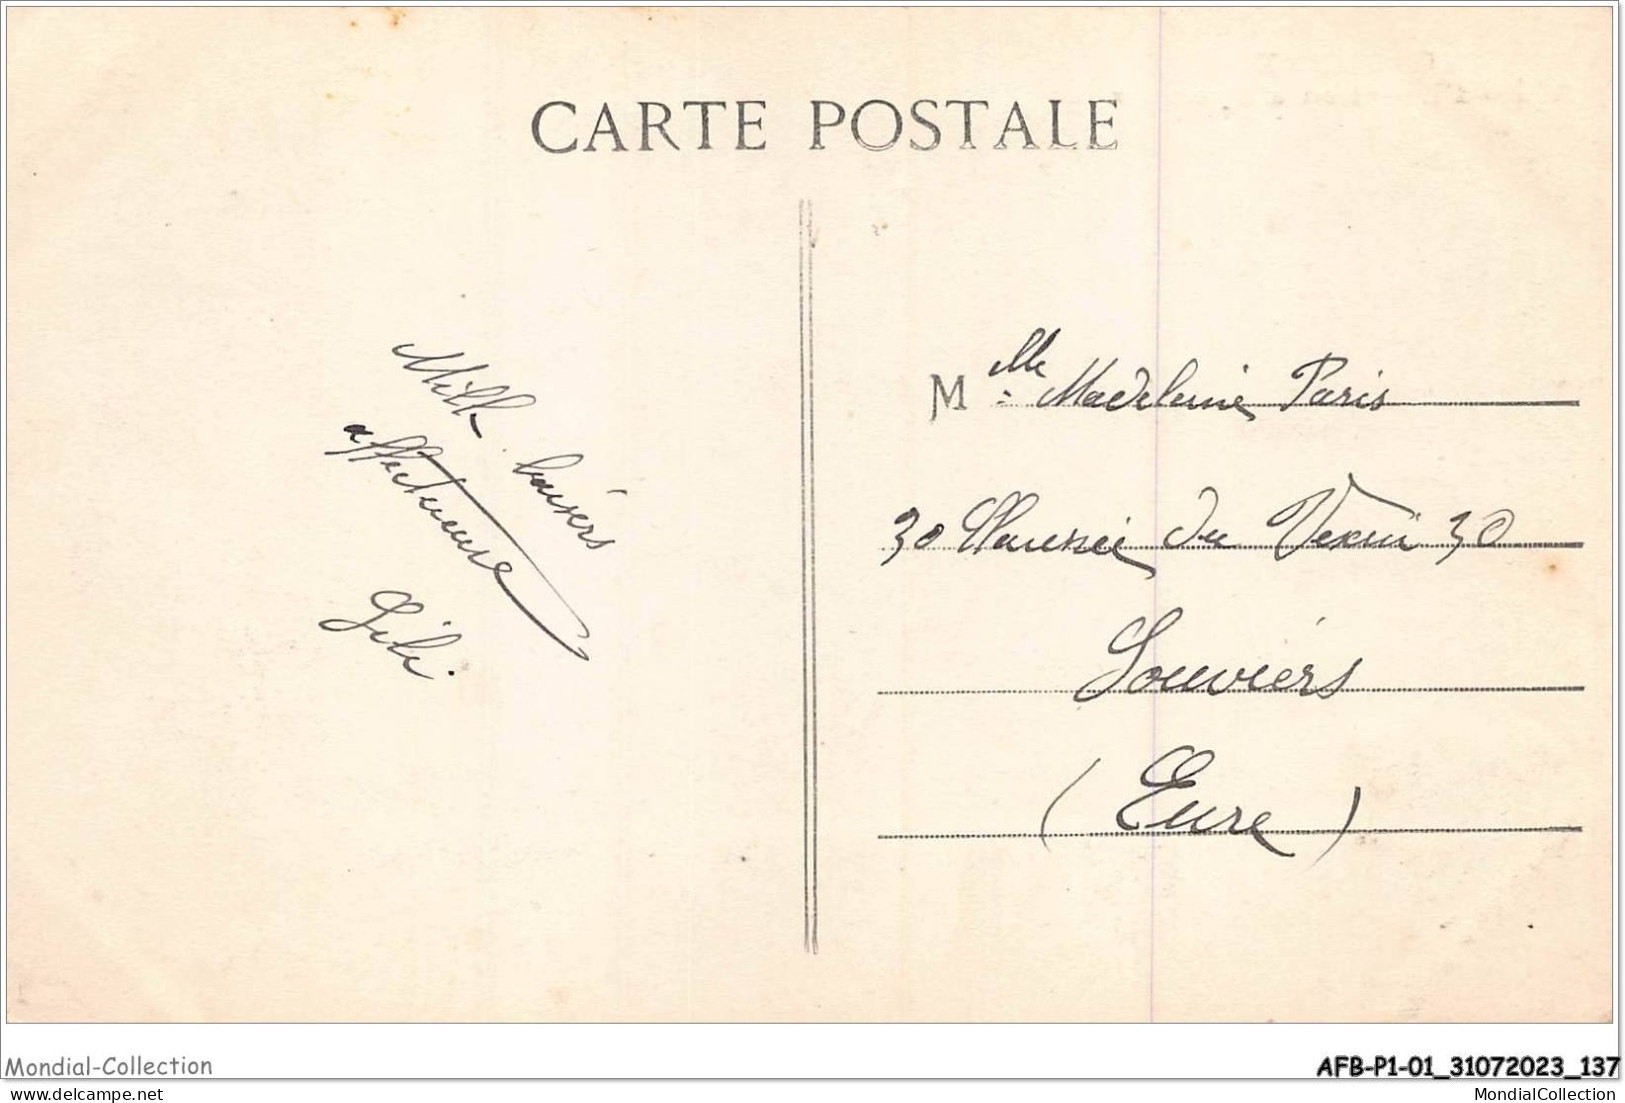 CARTE POSTALE
Mille baisers
affectueuse
Lili.
Mlle Madeleine Paris
30 Chaussée du Vexin 30
Louviers
(Eure)
Mondial-Collection
AFB-P1-01_31072023_137
delcampe.net
MondialCollection